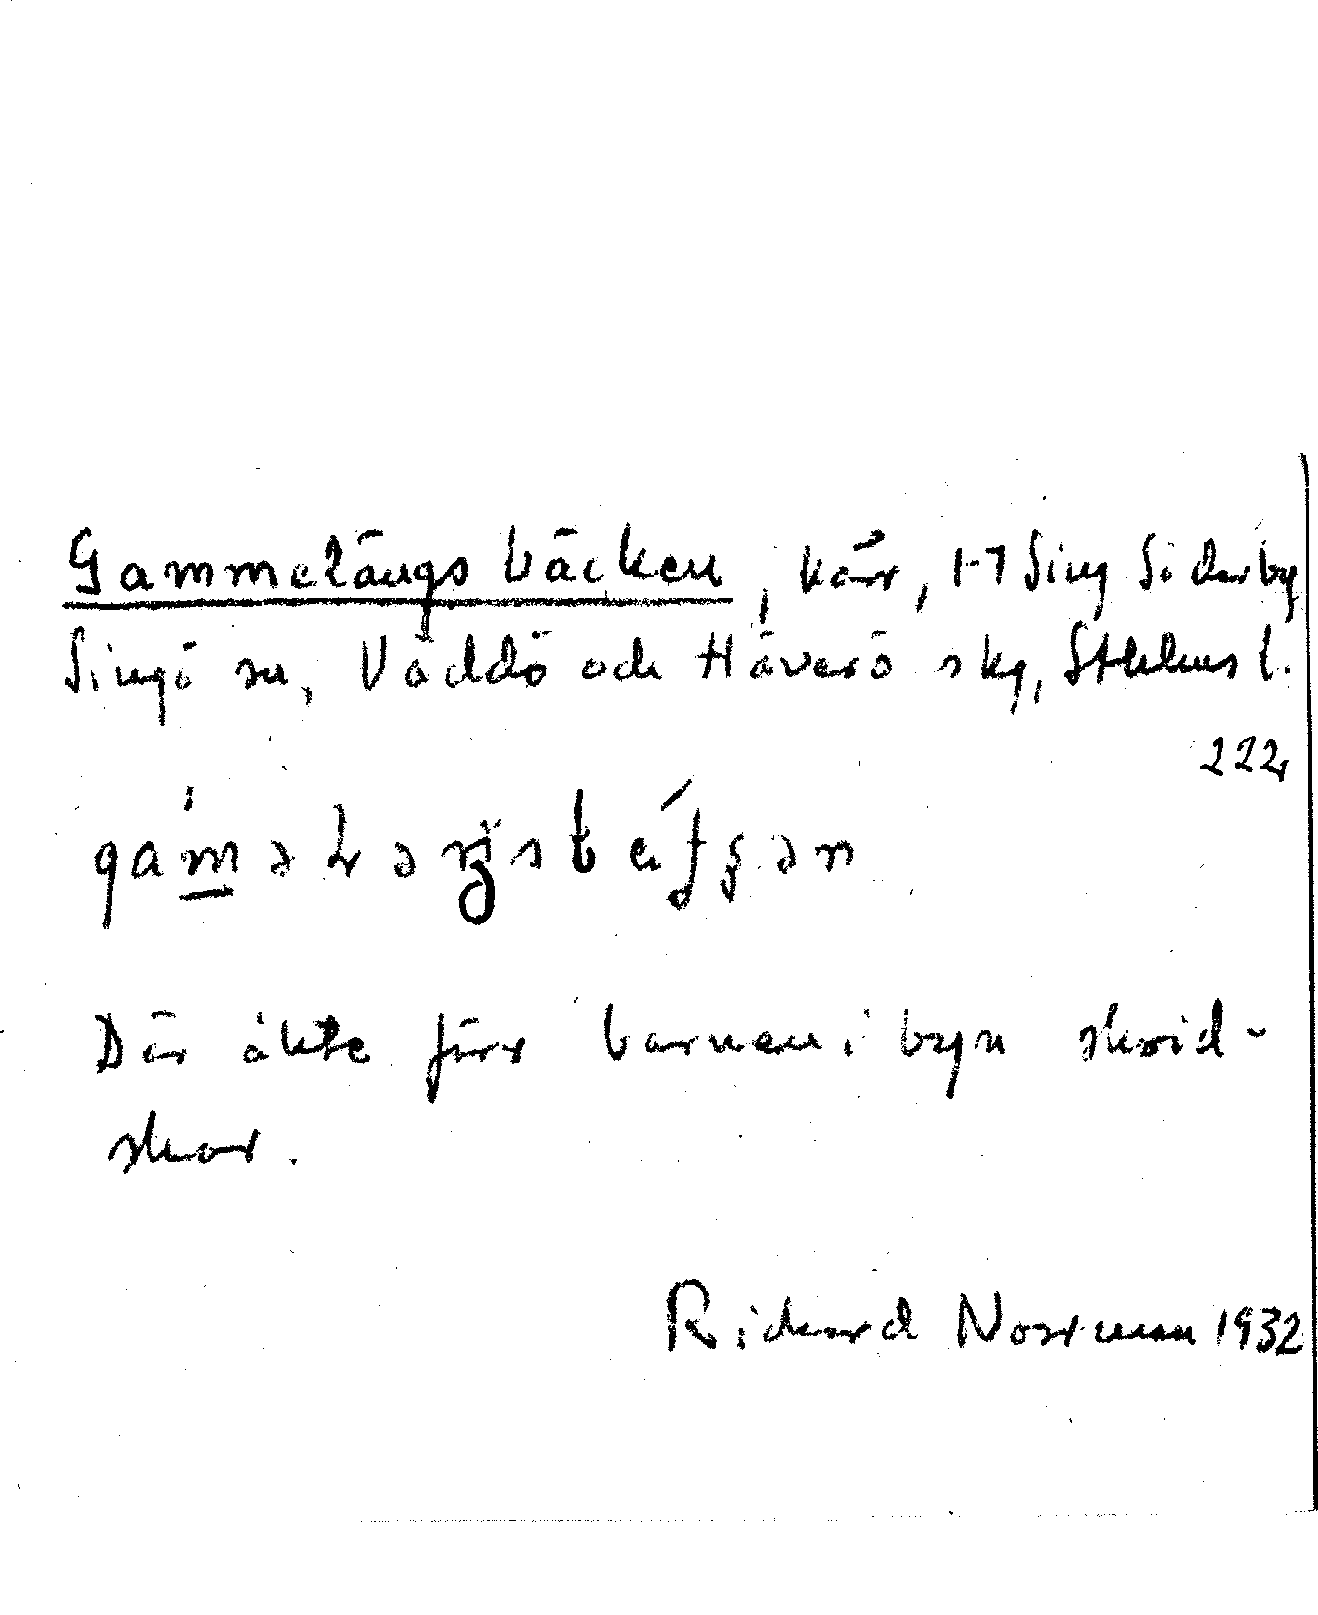 Gammelängsbäcken, kärr, 1-7 Sing Söderby
Singö sn, Väddö och Häverö skg, Sthlms l.
222
Där åkte förr barnen i byn skrid-
skor.
Richard Norrman 1932